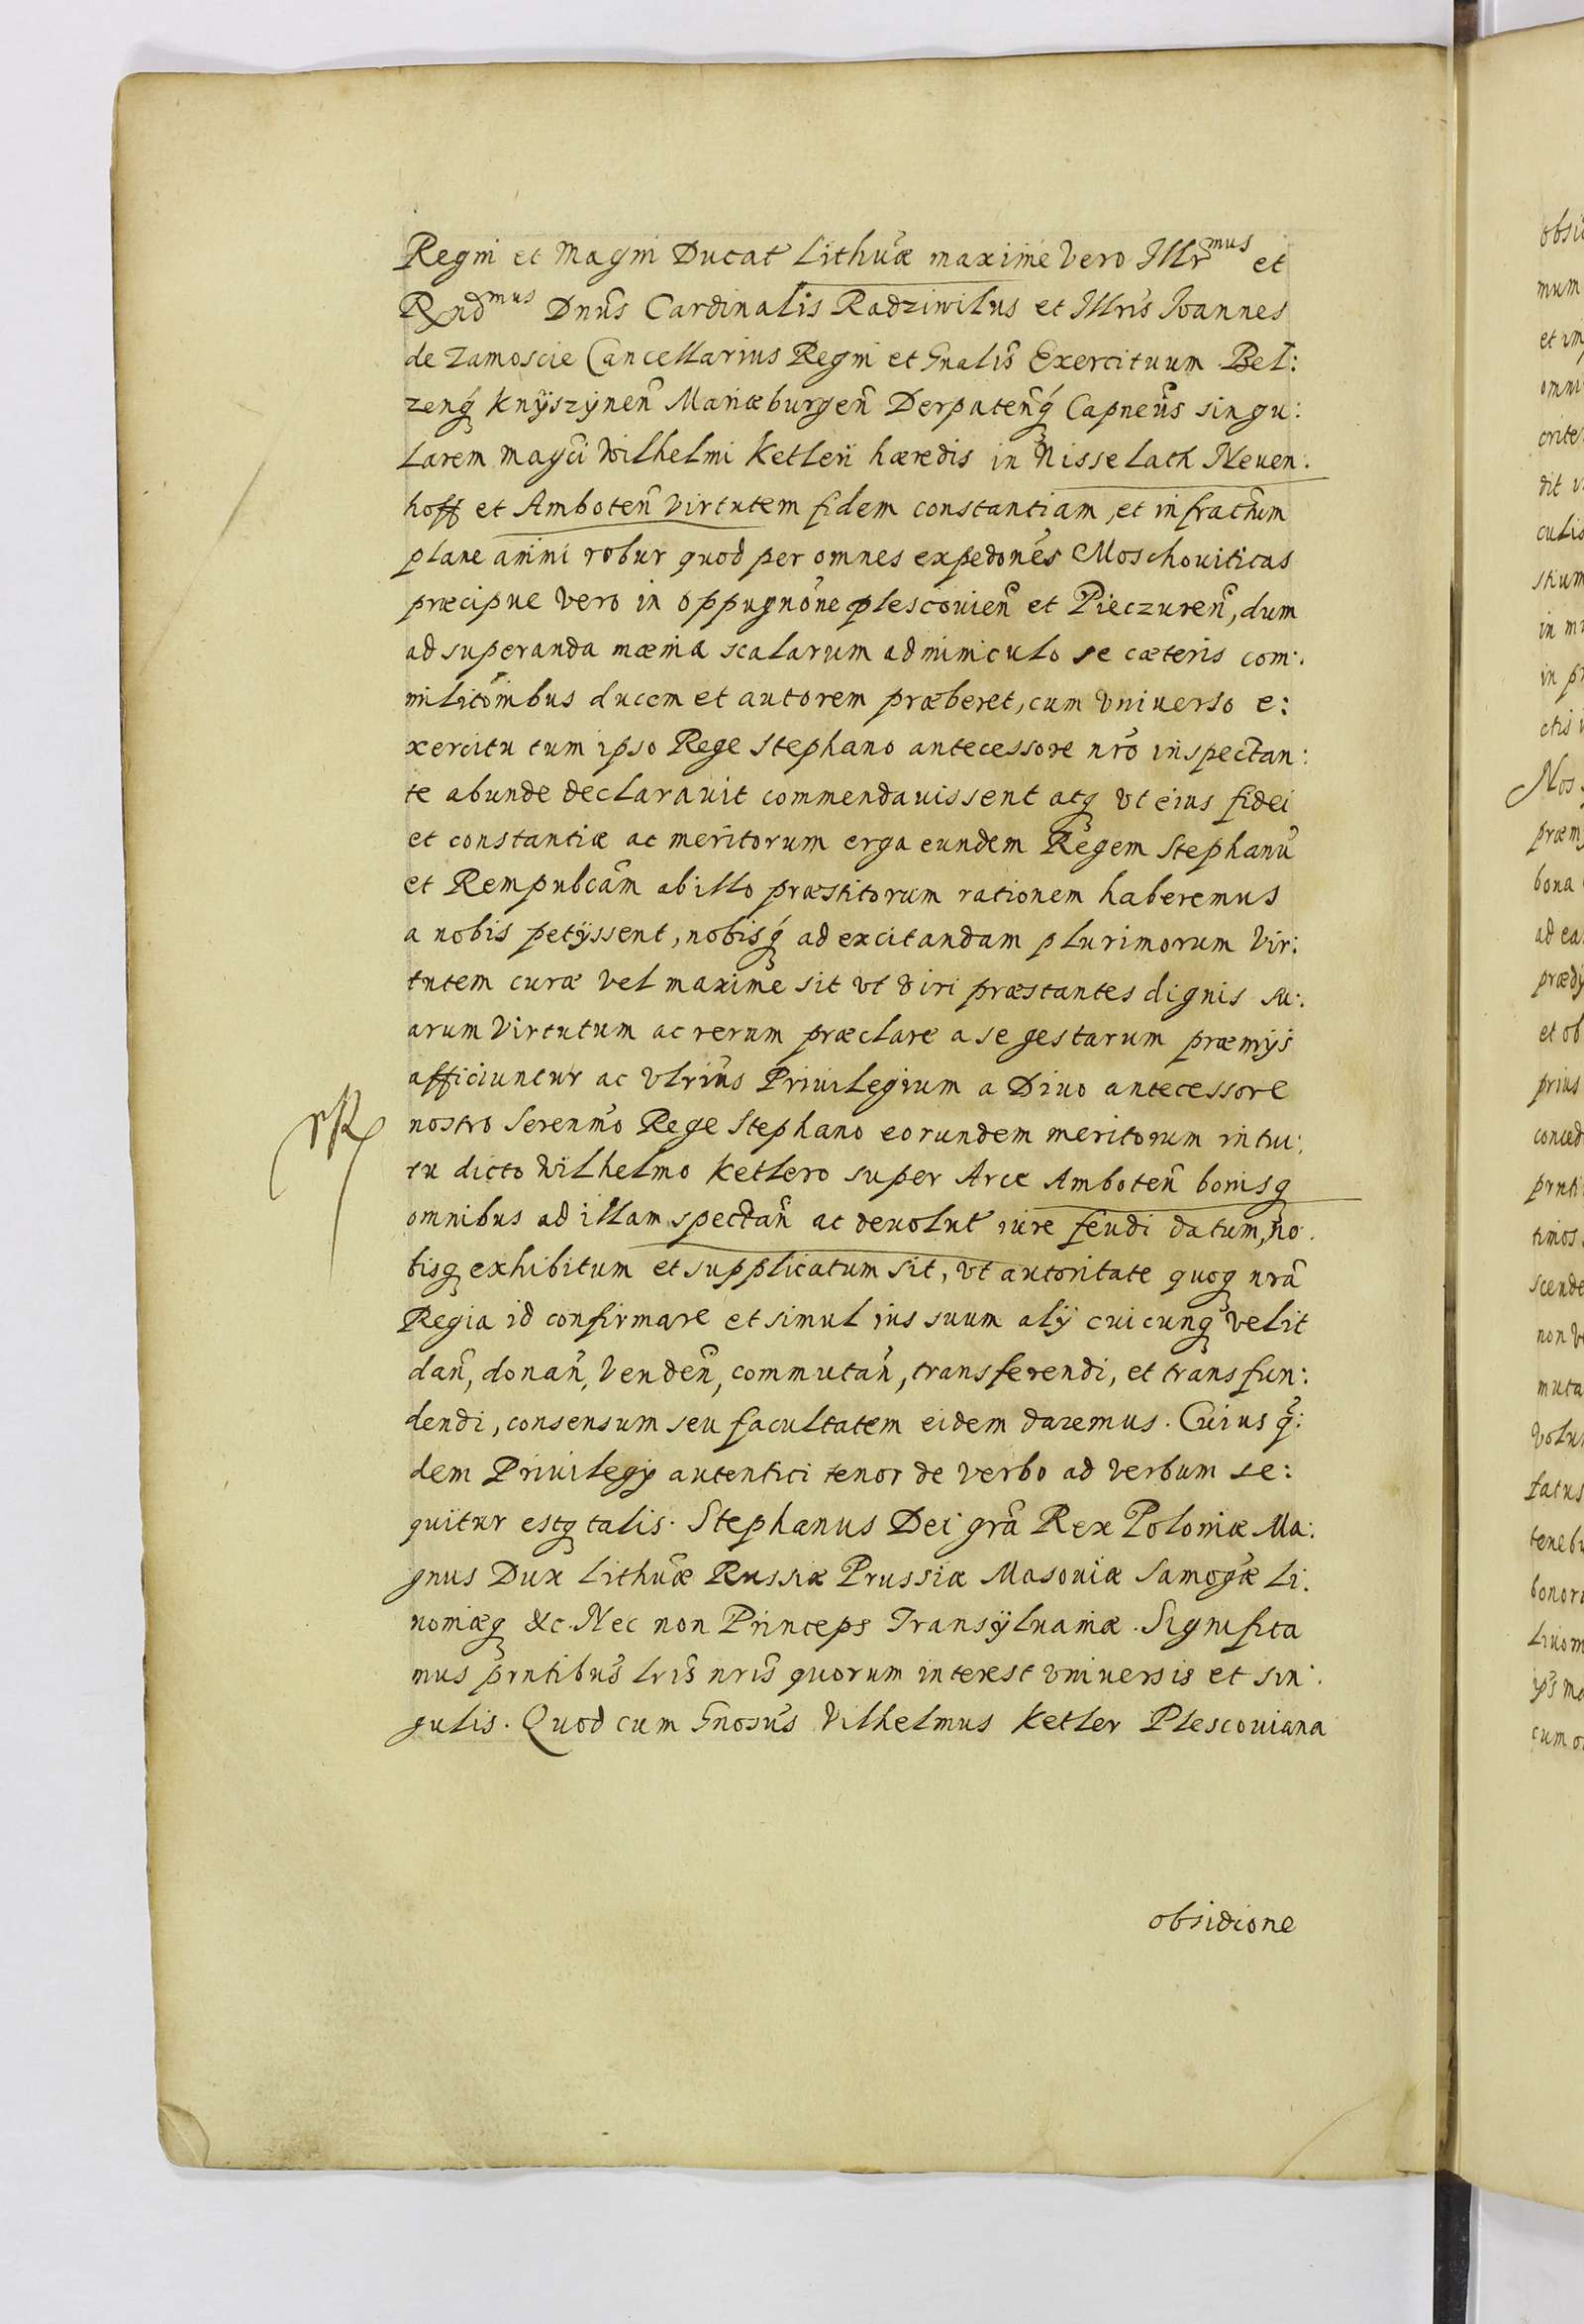 Regni et Magni Ducat Lithuæ maxime vero Illr^mus et
Rnd^mus Dnus Cardinalis Radziwilus et Illris Ioannes
de Zamoscie Cancellarius Regni et Gnalis Exercituum Bel:
zenq Knÿszÿnen Mariæburgen Derpatenq Capneus singu:
larem Magci Wilhelmi Ketleri hæredis in Nisselath Neuen:
hoff et Amboten virtutem fidem constantiam, et infractum
plane animi robur quod per omnes expedones Moschouiticas
præcipue vero in oppugnone plescouien et Pieczuren, dum
ad superanda mænia scalarum adminiculo se cæteris com:
militonibus ducem et autorem præberet, cum vniuerso e:
xercitu tum ipso Rege Stephano antecessore nro inspectan:
te abunde declarauit commendauissent atq vt eius fidei
et constantiæ ac meritorum erga eundem Regem Stephanu
et Rempubcam ab illo præstitorum rationem haberemus
a nobis petÿssent, nobisq ad excitandam plurimorum vir:
tutem curæ vel maxime sit vt viri præstantes dignis su:
arum virtutum ac rerum præclare a se gestarum præmÿs
afficiuntur ac vlrius Priuilegium a Diuo antecessore
nostro Serenmo Rege Stephano eorundem meritorum intui:
tu dicto Wilhelmo Ketlero super Arce Amboten bonisq
omnibus ad illam spectan ac deuolut iure feudi datum, no:
bisq exhibitum et supplicatum sit, vt autoritate quoq nra
Regia id confirmare et simul ius suum alÿ cuicunq velit
dan, donan, venden, commutan, transferendi, et transfun:
dendi, consensum seu facultatem eidem daremus. Cuius q:
dem Priuilegÿ autentici tenor de verbo ad verbum se:
quitur estq talis. Stephanus Dei gra Rex Poloniæ Ma:
gnus Dux Lithuæ Russiæ Prussiæ Masouiæ Samogæ Li:
uoniæq &c. Nec non Princeps Transÿluaniæ. Significa
mus prntibus lris nris quorum interest vniuersis et sin:
gulis. Quod cum Gnosus Vilhelmus Ketler Plescouiana
obsidione